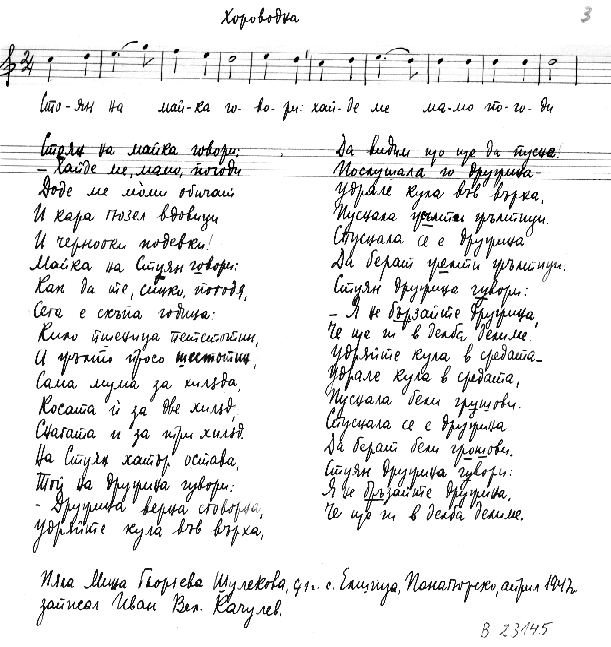 Хороводна
3
Сто-ян на май-ка го-во-ри: хай-де ме ма-мо по-го-ди
Стоян на майка говори:
- Хайде ме, мамо, погоди
Доде ме моми обичат
И кара гюзел вдовици
И чернооки подевки!
Майка на Стуян говори:
Как да те, синко, погодя,
Сега е скъпа година:
Кило пшеница петстотин,
И гръсто просо шестотин,
Сама мума за хиляда,
Косата ѝ за две хиляд,
Снагата и за три хиляд.
На Стуян хатър остава,
Той на дружина гувори:
- Дружина верна сговорна,
Удряйте кула във върха,
Да видим що ще да пусне.
Послушала го дружина
Удрале кула във върха,
Пуснала жълти жълтици.
Спуснала се е дружина
Да берат жълти жълтици.
Стуян дружина гувори:
- Я не бързайте дружина,
Че ще ги в делба делиме.
Удряйте кула в средата -
Удрале кула в средата,
Пуснала бели грушови.
Спуснала се е дружина
Да берат бели грошови.
Стуян дружина гувори:
Я не бързайте дружина,
Че ще ги в делба делиме.
Пяла Мица Георгева Шулекова, 47 г. с. Елшица, Панагюрско, април 1947 г.
записал Иван Вел. Качулев.
В 23145